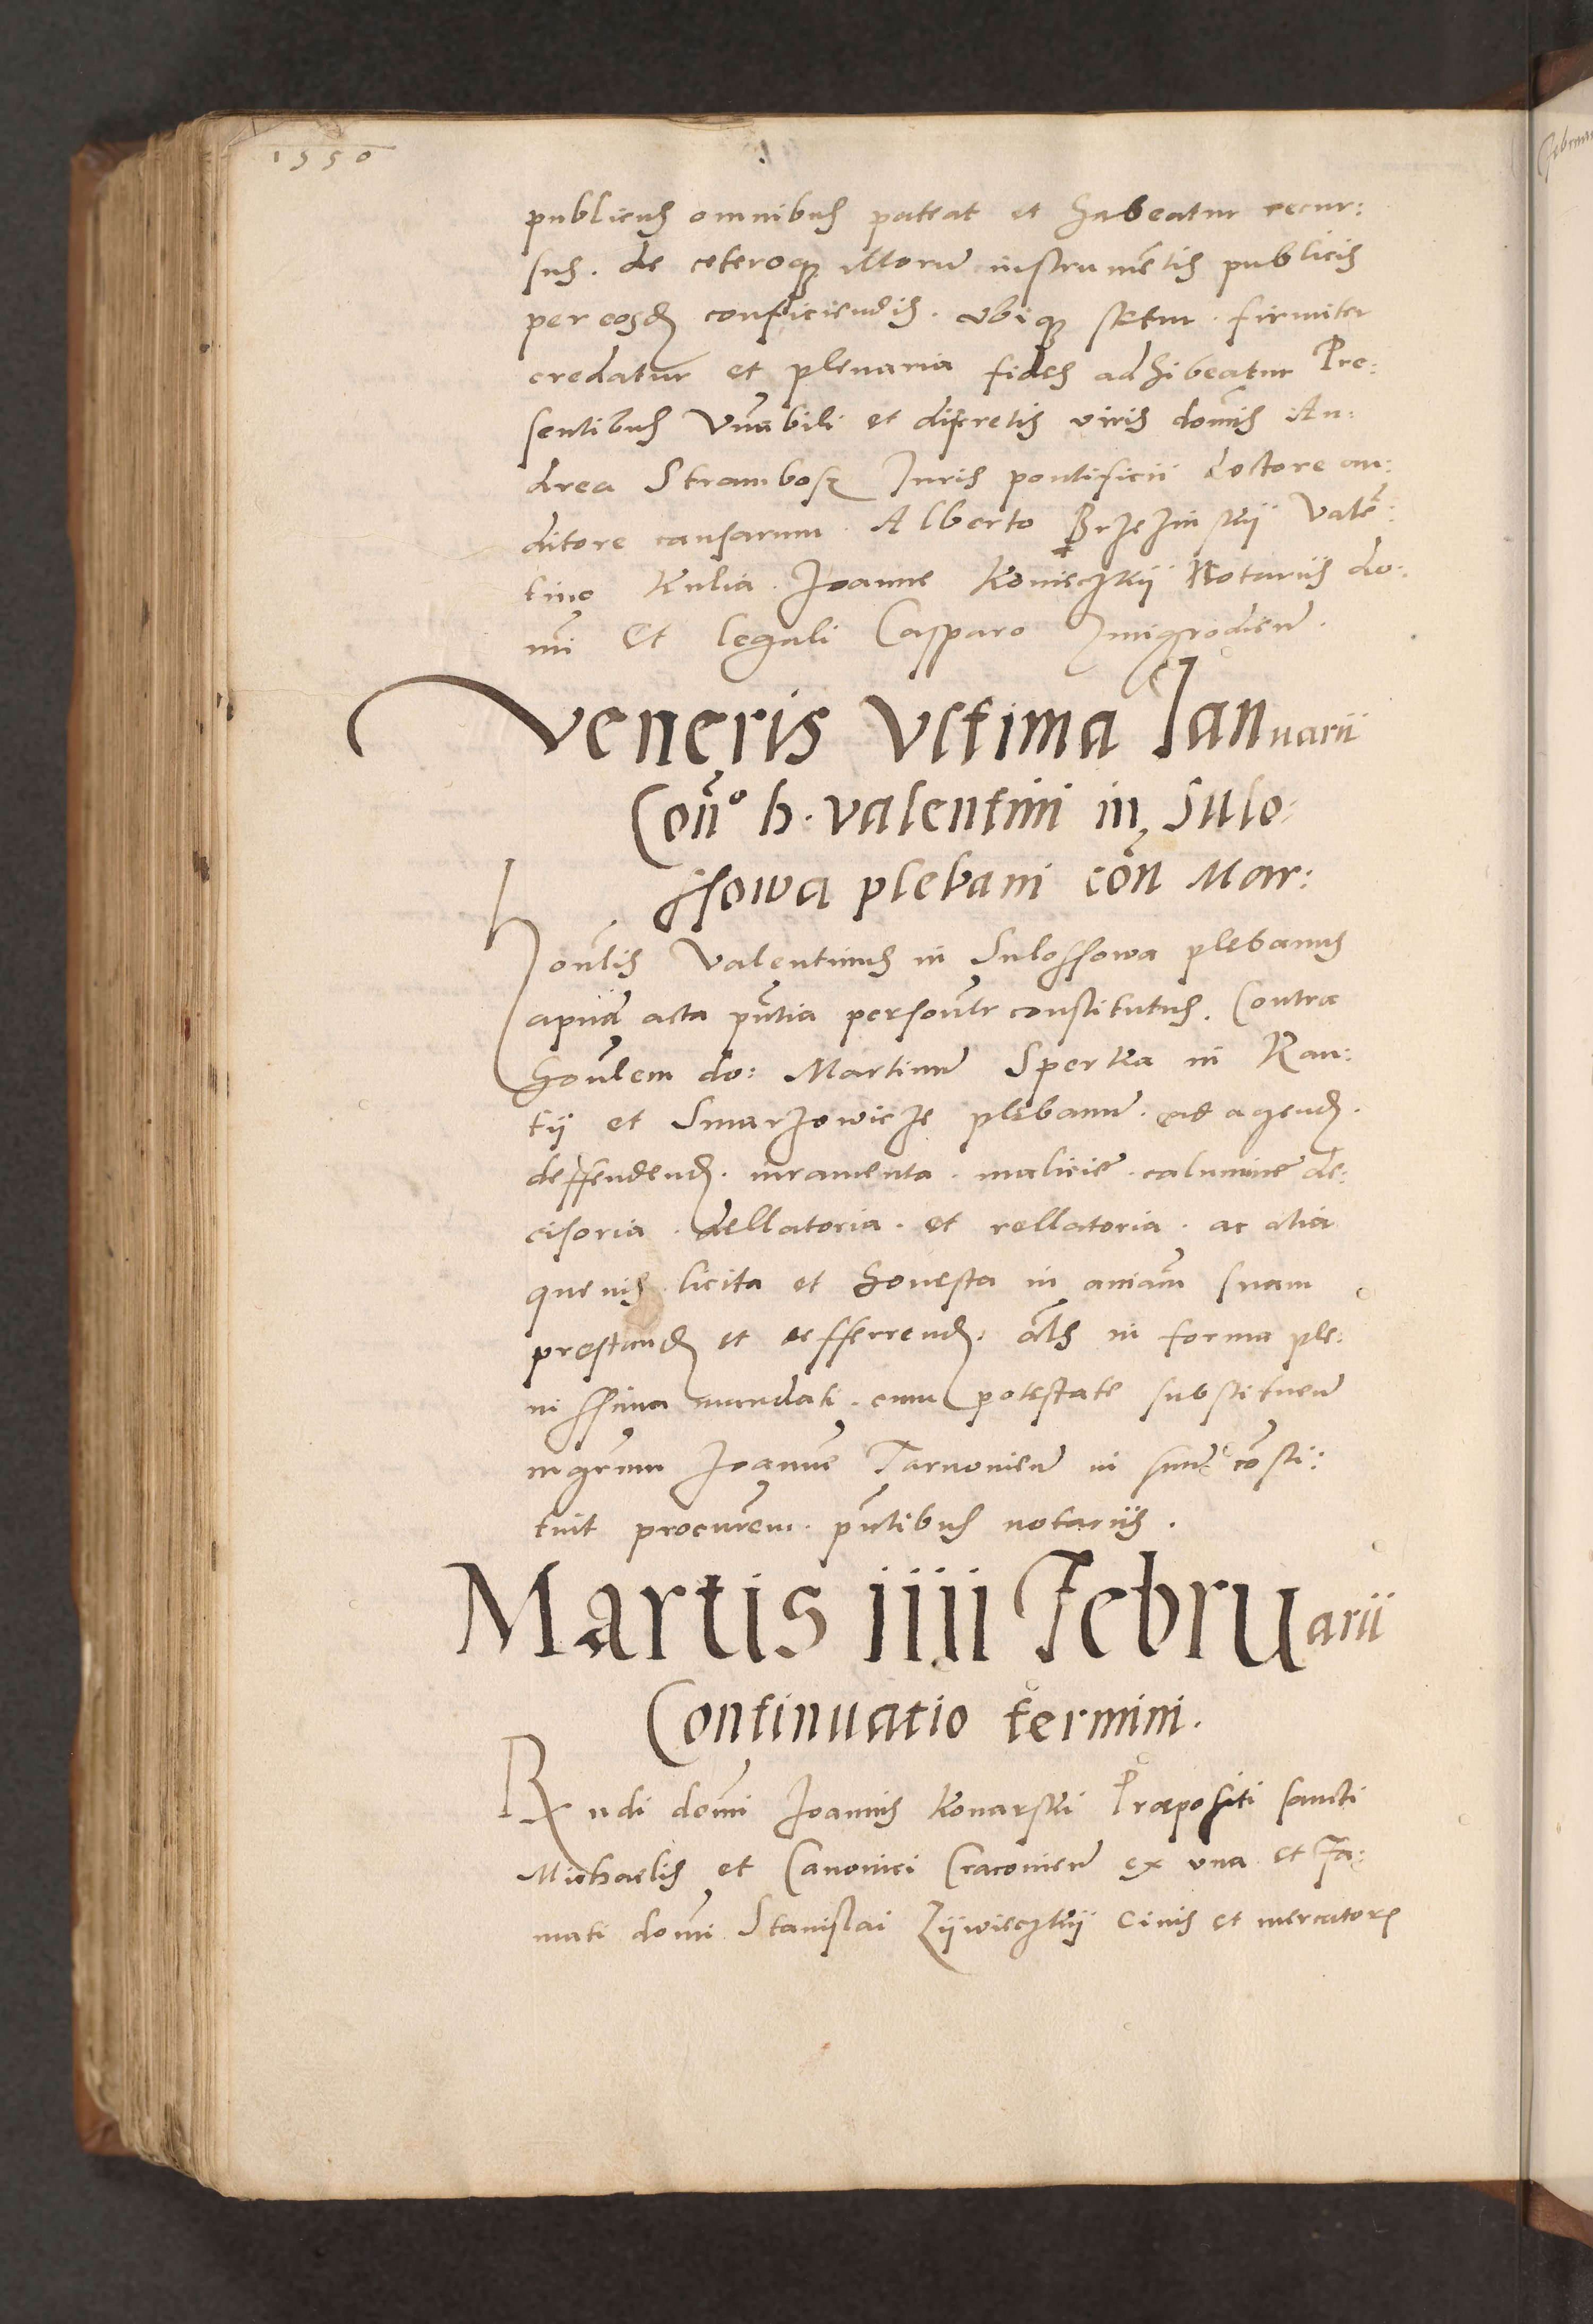 1550
publicus omnibus pateat et habeatur recur:
sus. de ceteroq3 illorū instrumētis publicis
per eosd conficiendis. ubiq3 stetur. firmiter
credatur et plenaria fides adhibeatur Pre:
sentibus Vnābili et discretis viris domīs An:
drea Strambosz Juris pontificii doctore au:
ditore causarum. Alberto Brzezinskij Valē:
tino Kulia. Joanne Konieczkij Notariis do:
mī Et legali Casparo Zmigrodien̄.
Veneris Vltima Januarii
Con̄º h. valentini in Sulo:
ssowa plebani cōn Mar:
Honlis Valentinus in Sulossowa plebanus
apud acta pn̄tia personlr constitutus. Contra
honlem do: Martinū Sperka in Kan:
tij et Smarzowicze plebanū. ad agend.
deffendend. iuramenta. malicie. calumnie de:
cisoria. dellatoria. et rellatoria. ac alia
quevis licita et honesta in animā suam
prestand et defferrend. als in forma ple:
nissima mandati. cum potestate substituen̄
mgrum Joannē Tarnovien̄ in suū cōsti:
tuit procurēm. pn̄tibus notariis.
Martis iiii Februarii
Continuatio termini.
Rx ndi domī Joannis Konarski Præpositi sancti
Michaelis et Canonici Cracovien̄ ex una et Fa:
mati domī Stanislai Zijwieczkij Civis et mercatoris